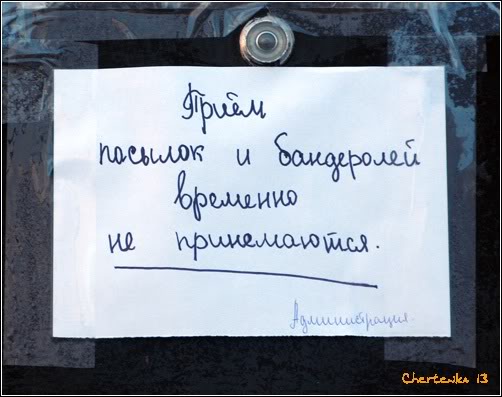 Приём
посылок и бандеролей
временно
не принемаются.
Администрация.
Chertenka 13